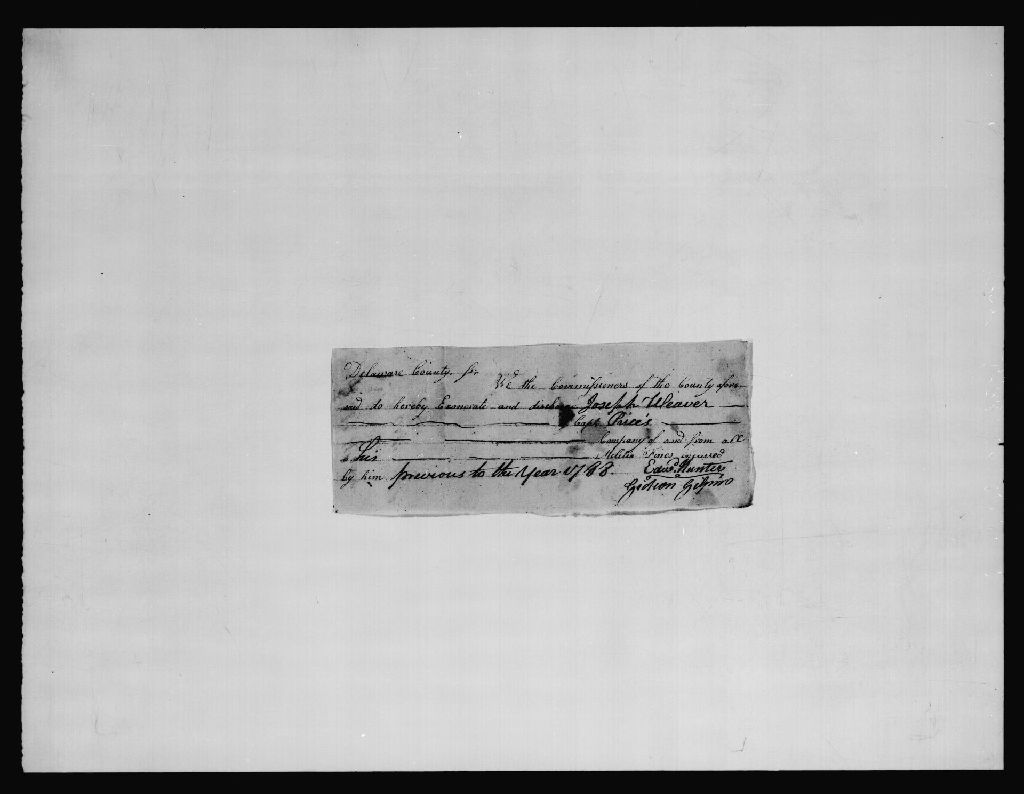 Delaware County, ss.
We the Commissioners of the County afore-
said do hereby Exonerate and discharge Joseph Weaver
of Capt. Price's
Company of and from all
his Militia Fines incurred
by him previous to the Year 1788. Edwd. Hunter
Gideon Gilpin